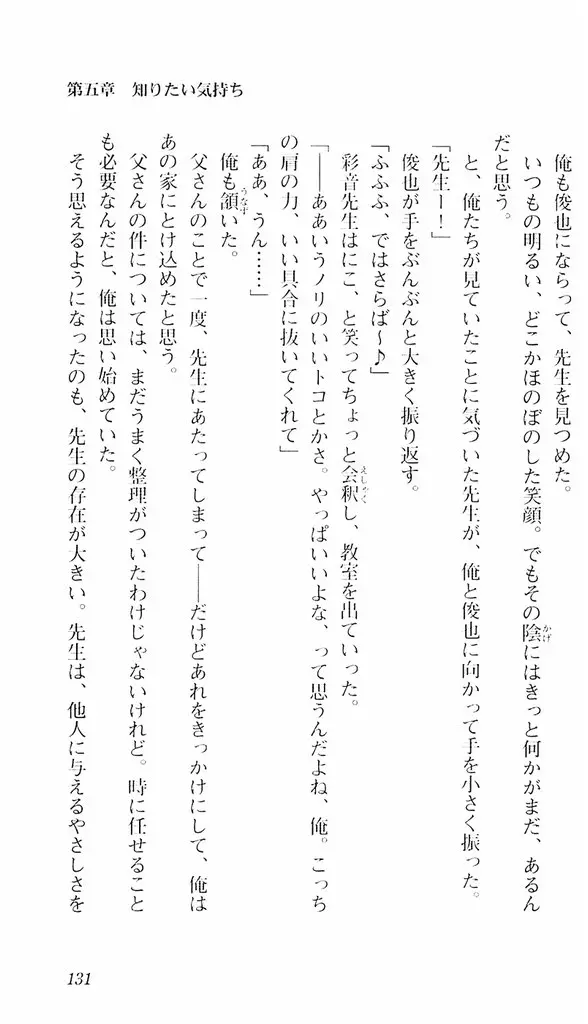 第五章　知りたい気持ち
俺も俊也にならって、先生を見つめた。
いつもの明るい、どこかほのぼのした笑顔。でもその陰にはきっと何かがまだ、あるん
だと思う。
と、俺たちが見ていたことに気づいた先生が、俺と俊也に向かって手を小さく振った。
「先生ー！」
俊也が手をぶんぶんと大きく振り返す。
「ふふふ、ではさらば～♪」
彩音先生はにこ、と笑ってちょっと会釈し、教室を出ていった。
「――ああいうノリのいいトコとかさ。やっぱいいよな、って思うんだよね、俺。こっち
の肩の力、いい具合に抜いてくれて」
「ああ、うん……」
俺も頷いた。
父さんのことで一度、先生にあたってしまって――だけどあれをきっかけにして、俺は
あの家にとけ込めたと思う。
父さんの件については、まだうまく整理がついたわけじゃないけれど。時に任せること
も必要なんだと、俺は思い始めていた。
そう思えるようになったのも、先生の存在が大きい。先生は、他人に与えるやさしさを
かげ
えしゃく
うなず
131